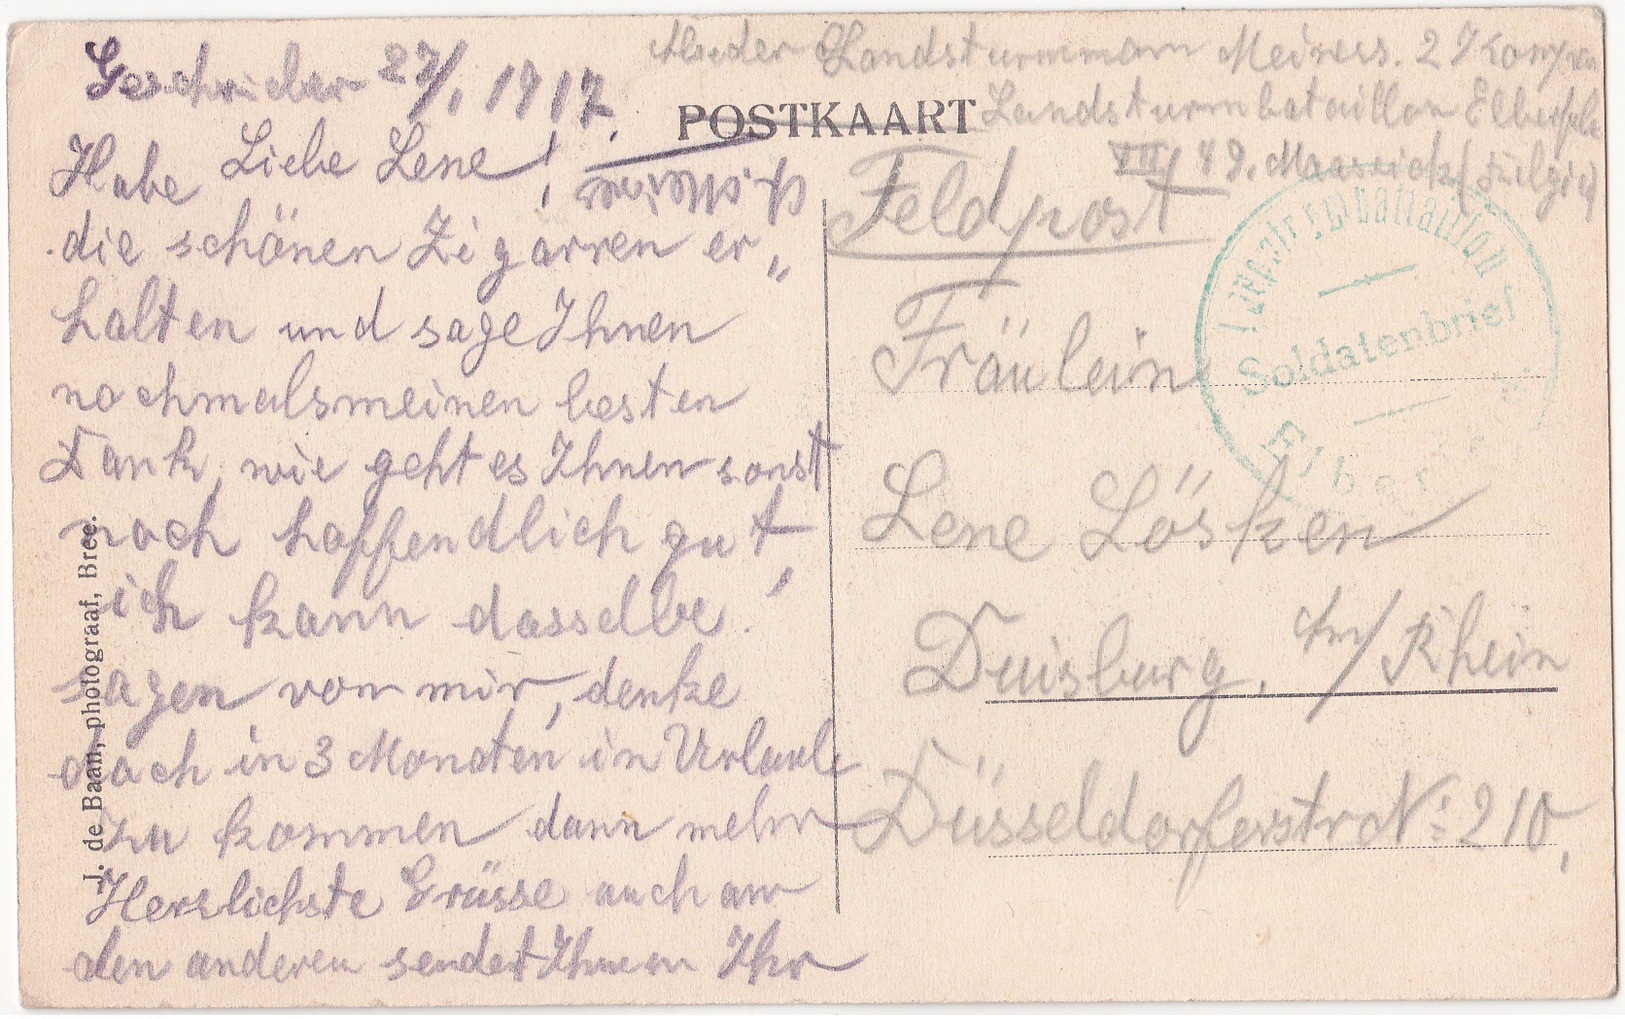 Geschrieben 27/1 1917.
Liebe Lene!
Habe
die schönen Zigarren er„
halten und sage Ihnen
nochmals meinen besten
Dank, wie geht es Ihnen sonst
noch hoffendlich gut,
ich kann dasselbe
sagen von mir, denke
auch in 3 Monaten in Urlaub
zu kommen dann mehr
Herzlichste Grüsse auch an
den anderen sendet Ihnen Ihr
Landsturmmann Meiners. 2
POSTKAART
Landsturmbataillon Elberfeld
VII/49. Maaseick/Belgien
Feldpost
Fräulein
Lene Lösken
Duisburg. Am/Rhein
Düsseldorferstr N: 210,
Soldatenbrief
J. de Baan, photograaf, Bree.